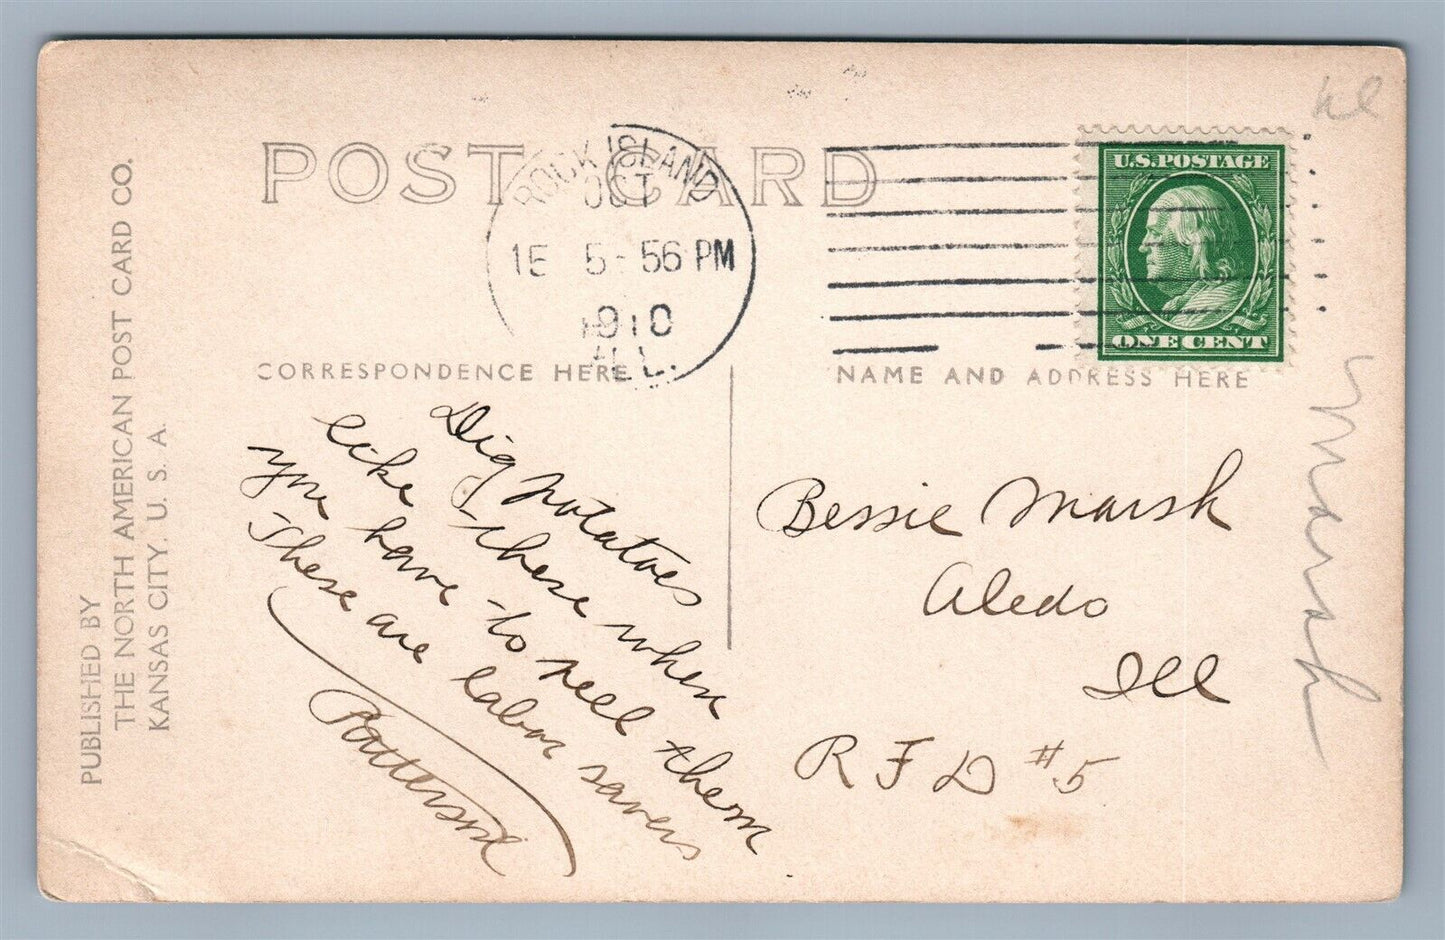 POST CARD
ROCK ISLAND
OCT
15 5-56 PM
1910
ILL.
U.S.POSTAGE
ONE CENT
PUBLISHED BY
THE NORTH AMERICAN POST CARD CO.
KANSAS CITY. U. S. A.
CORRESPONDENCE HERE
NAME AND ADDRESS HERE
Dig potatoes
like these when
you have to peel them
These are labor savers
Patterson
Bessie Marsh
Aledo
Ill
R F D #5
Marsh